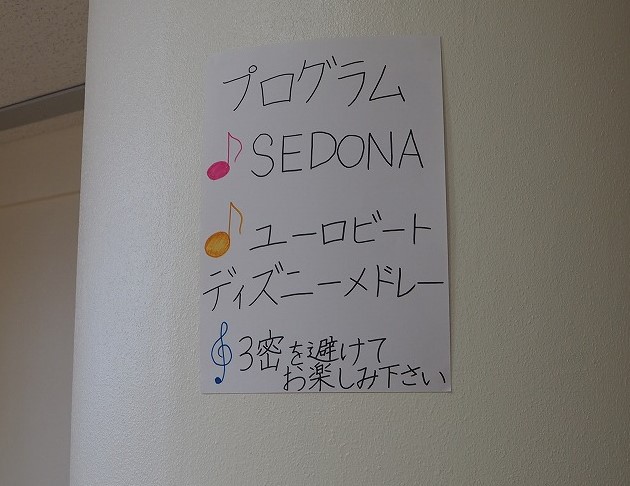 プログラム
SEDONA
ユーロビート
ディズニーメドレー
3密を避けて
お楽しみ下さい